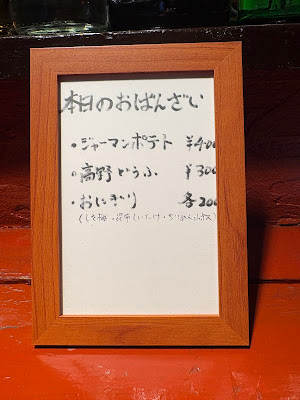 本日のおばんざい
・ジャーマンポテト ¥400
・高野どうふ ¥300
・おにぎり 各200
(しそ梅・昆布しいたけ・ちりめん